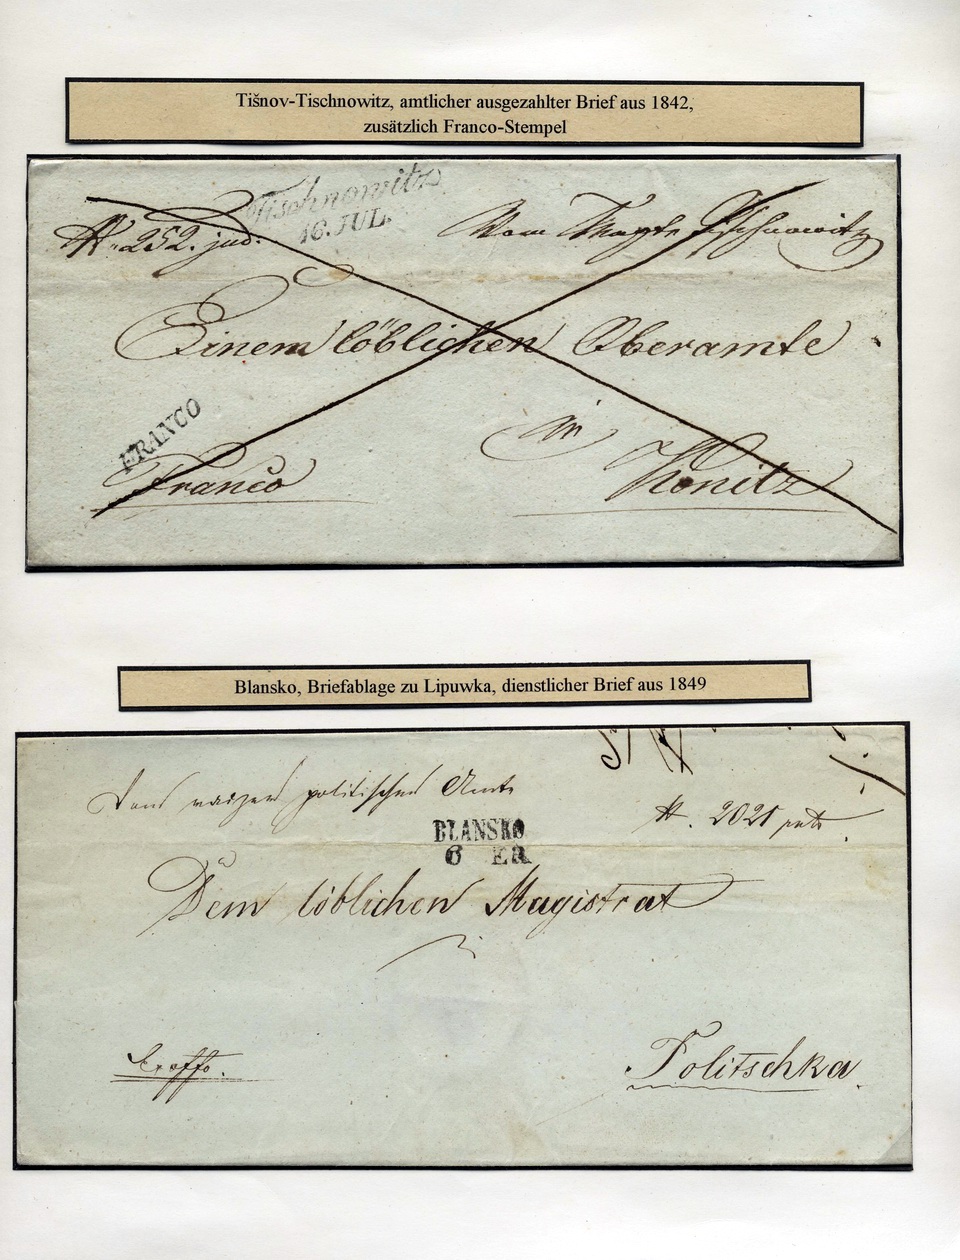 Tišnov-Tischnowitz, amtlicher ausgezahlter Brief aus 1842,
zusätzlich Franco-Stempel
Tischnowitz
16. JUL.
N. 252. jud.
Vom Magte Tischnowitz
Einem löblichen Oberamte
in
FRANCO
Franco
Konitz
Blansko, Briefablage zu Lipuwka, dienstlicher Brief aus 1849
Vom raizer politischen Amte
N. 2021
BLANSKO
6
Dem löblichen Magistrat
Politschka